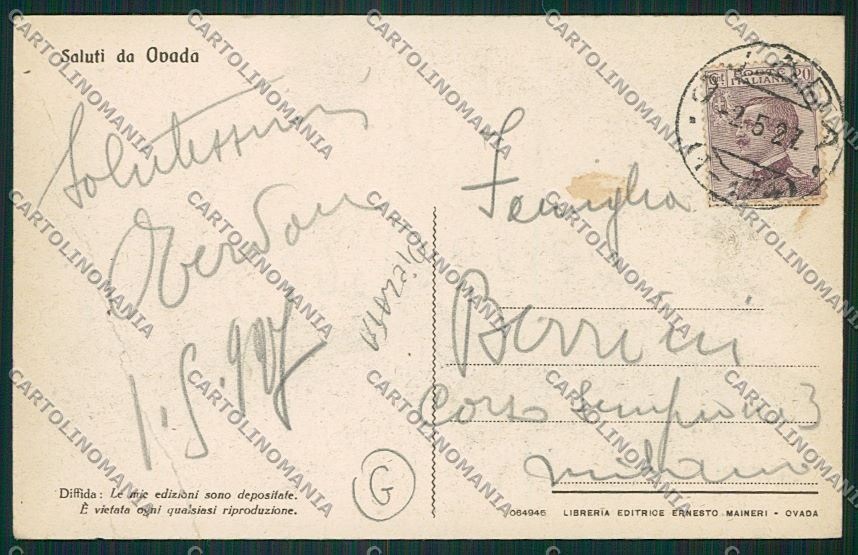 Saluti da Ovada
Salutissimi
1.5.927
Famiglia
Berrini
Corso Sempione 3
Milano
POSTE
ITALIANE
20
-2.5.27
G
Diffida: Le mie edizioni sono depositate.
È vietata ogni qualsiasi riproduzione.
064946 LIBRERIA EDITRICE ERNESTO MAINERI - OVADA
CARTOLINOMANIA